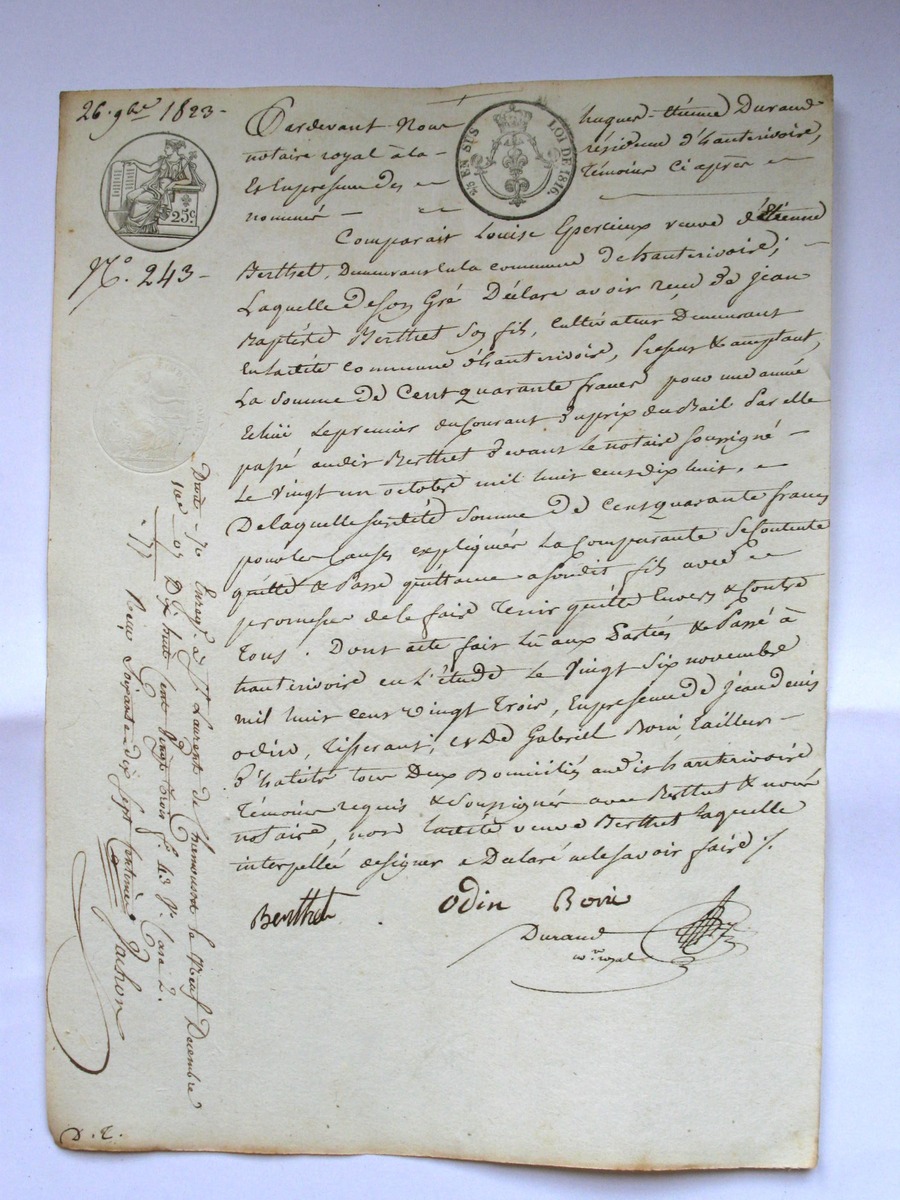 26. 9bre 1823 -
25c
N° 243 -
¼ EN SUS
LOI DE 1816.
Pardevant Nous hugues-étienne Durand
notaire royal à la - résidence d'hauterivoire,
Et En presence des témoins ci après
nommés -
Comparait Louise Epercieux veuve d'étienne
Berthet, Demeurant En la commune de hauterivoire; -
Laquelle de son Gré Déclare avoir reçu de jean
Baptiste Berthet son fils, Cultivateur Demeurant
En la dite commune d'hauterivoire, present & acceptant,
La Somme de Cent quarante francs pour une année
Echüe le premier du Courant du prix du Bail Par elle
passé audit Berthet devant le notaire soussigné -
Le Vingt un octobre mil huit cent dix huit. -
De laquelle susdite Somme de Cent quarante francs
pour les Causes expliquées La Comparante Se Contente
quitte & Passe quittance a Son dit fils avec
promesse de le faire Tenir quitte Envers & Contre
Tous. Dont acte fait Lu aux Parties & Passé à
hauterivoire en L'étude Le Vingt Six novembre
mil huit cent vingt trois, En presence de Jean denis
odin, Tisserant, et De Gabriel Boni, tailleur -
D'habits tous Deux Domiciliés audit hauterivoire
Témoins requis & Soussignés avec Berthet & nous
notaire, non laditte veuve Berthet laquelle
interpellée de signer a Declaré ne le savoir faire ./.
Berthet. odin Boni
Durand
n.re royal
Enregé. à St. Laurent de Chamousset le Neuf Decembre
Dix huit cent vingt trois f° 43 v° Case 2.
Reçu Soixante dix Sept Centimes
Droit - 70
10e - 07
- 77
D. T.